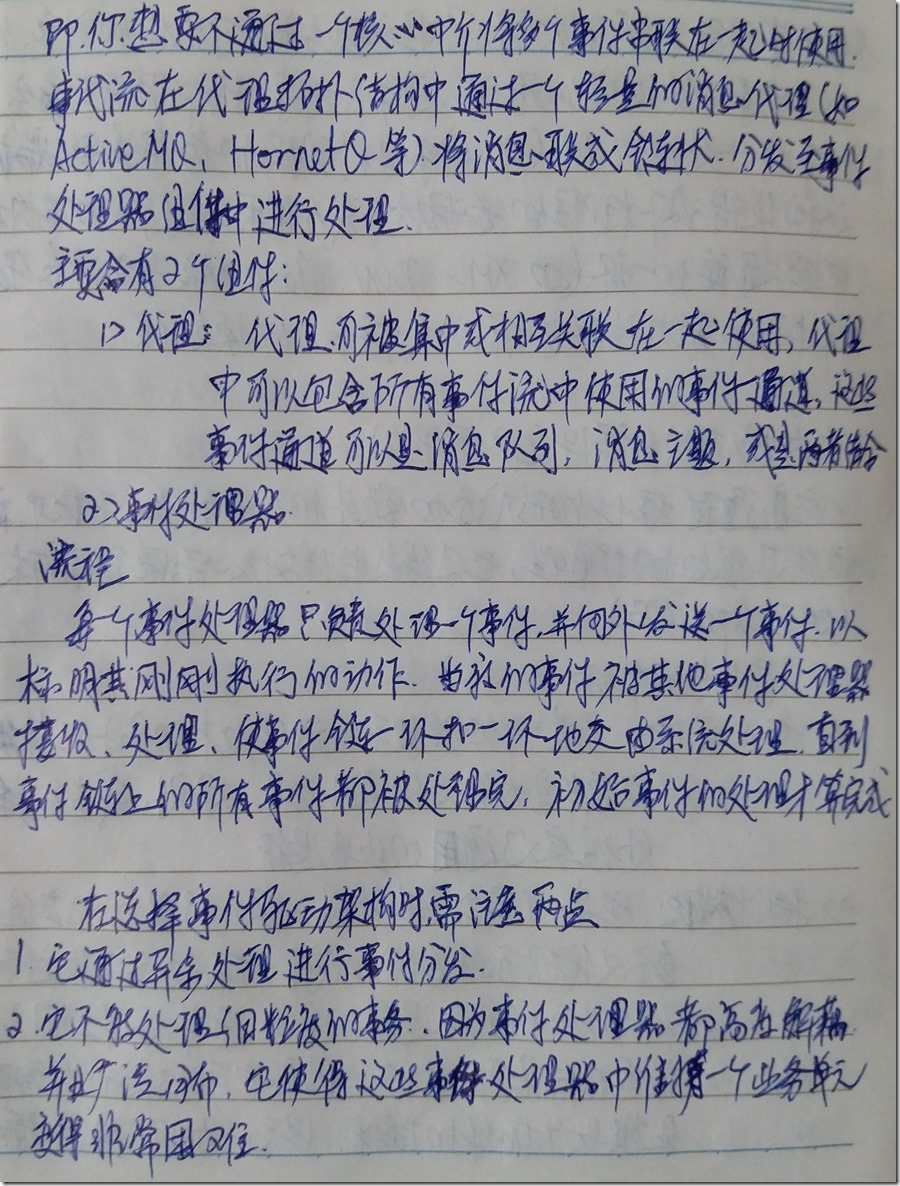 即你想要不通过一个核心中介将多个事件串联在一起时使用.
事件流在代理拓扑结构中通过一个轻量的消息代理(如
ActiveMQ、HornetQ等)将消息联成链状.分发至事件
处理器组件中进行处理.
主要含有2个组件:
1> 代理: 代理可被集中或相互关联在一起使用,代理
中可以包含所有事件流中使用的事件通道,这些
事件通道可以是消息队列,消息主题,或是两者结合
2>事件处理器.
流程
每一个事件处理器只负责处理一个事件,并向外发送一个事件.以
标明其刚刚执行的动作.当我的事件被其他事件处理器
接收、处理、使事件链一环扣一环地交由系统处理,直到
事件链上的所有事件都被处理完,初始事件的处理才算完成
在选择事件驱动架构时需注意两点
1.它通过异步处理进行事件分发.
2.它不能处理细粒度的事务.因为事件处理器都高度解耦
并且广泛分布,它使得这些事件处理器中维持一个业务单元
变得非常困难.